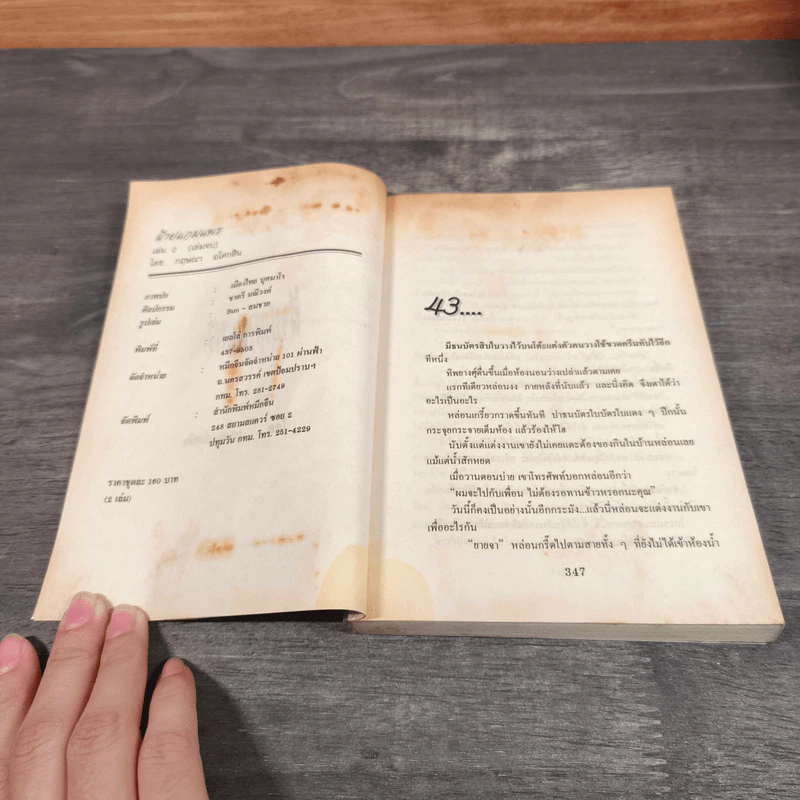 ฝ้ายแกมแพร
เล่ม 2 (เล่มจบ)
โดย กฤษณา อโศกสิน
ภาพปก : เมืองไทย บุศมาโร
ศิลปกรรม : ชาตรี มณีวงศ์
รูปเล่ม : Bun - สมชาย
พิมพ์ที่ : เยลโล่ การพิมพ์
437-8803
จัดจำหน่าย : หมึกจีนจัดจำหน่าย 101 ผ่านฟ้า
ถ.นครสวรรค์ เขตป้อมปราบฯ
กทม. โทร. 281-2749
จัดพิมพ์ : สำนักพิมพ์หมึกจีน
248 สยามสแควร์ ซอย 2
ปทุมวัน กทม. โทร. 251-4229
ราคาชุดละ 160 บาท
(2 เล่ม)
43....
มีธนบัตรสิบใบวางไว้บนโต๊ะแต่งตัวคนวางใช้ขวดครีมทับไว้อีก
ทีหนึ่ง
ทิพยางศุ์ตื่นขึ้นเมื่อห้องนอนว่างเปล่าแล้วตามเคย
แรกทีเดียวหล่อนงง ภายหลังที่นับแล้ว และนิ่งคิด จึงเดาได้ว่า
อะไรเป็นอะไร
หล่อนเกรี้ยวกราดขึ้นทันที ปาธนบัตรใบบัตรใบแดง ๆ ปึกนั้น
กระจุยกระจายเต็มห้อง แล้วร้องไห้โฮ
นับตั้งแต่แต่งงานเขายังไม่เคยแตะต้องของกินในบ้านหล่อนเลย
แม้แต่น้ำสักหยด
เมื่อวานตอนบ่าย เขาโทรศัพท์บอกหล่อนอีกว่า
“ผมจะไปกับเพื่อน ไม่ต้องรอทานข้าวหรอกนะคุณ”
วันนี้ก็คงเป็นอย่างนั้นอีกกระมัง...แล้วนี่หล่อนจะแต่งงานกับเขา
เพื่ออะไรกัน
“ยายจา” หล่อนกรี๊ดไปตามสายทั้ง ๆ ที่ยังไม่ได้เข้าห้องน้ำ
347